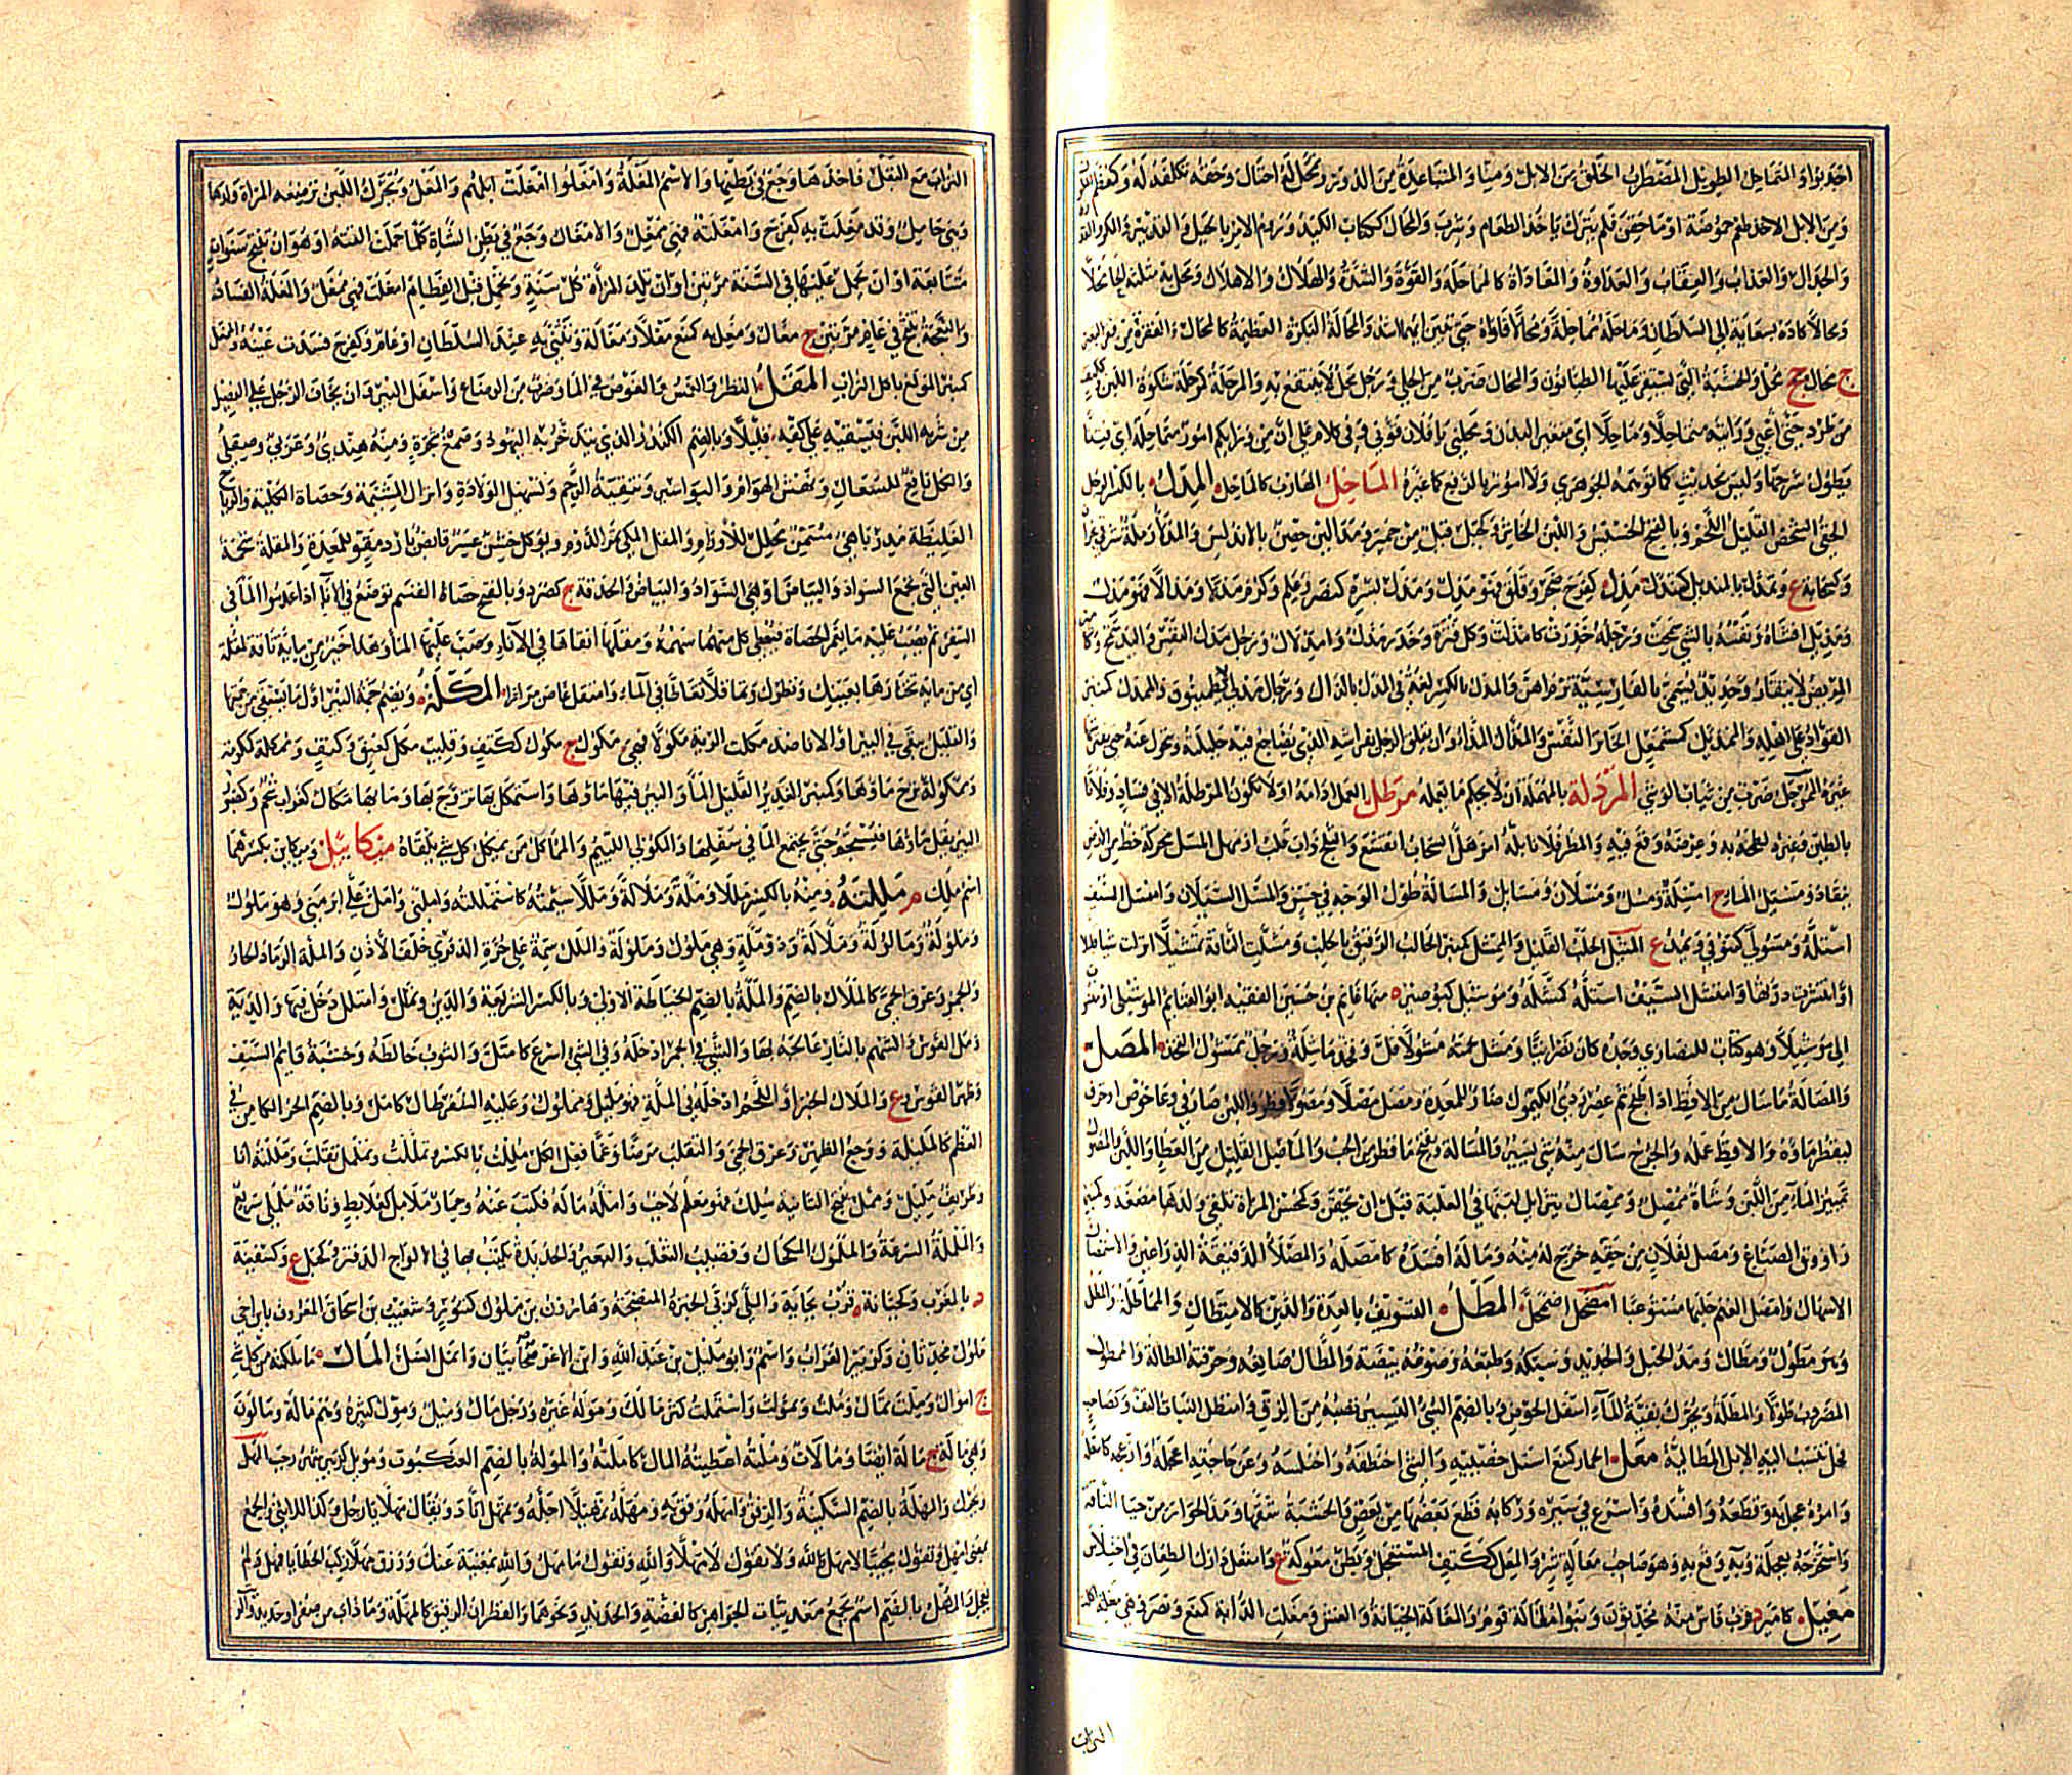 اجدبوا والمتماحل الطويل المضطرب الخلق من الابل ومنا والمتباعدة من الدور وتمحل له احتال وحقه تكلفه له
ومن الابل الاخذ طعم حموضة او ما حقن فلم يترك ياخذ الطعام وشرب والمحال ككتاب الكيد وروم الامر بالحيل والتدبير والمكر والقدرة
والجدال والعذاب والعقاب والعداوة والمعاداة كالمماحلة والقوة والشدة والهلاك والاهلاك ومحل به مثلثة الحاء محلا
ومحالا كاده بسعاية الى السلطان وماحله مماحلة ومحالا قاواه حتى يتبين ايهما اشد والمحالة البكرة العظيمة كالمحال والفقرة من فقر البعير
ج محال جج محل والخشبة التي يستقر عليها الطيانون والمحال ضرب من الحلي ورجل محل لا ينتفع به والممحلة كمرحلة شكوة اللبن
من طرد حتى اعيى ورايته متماحلا وماحلا اي متغير البدن وتمحلي يا فلان قوني وفي كلام علي ان من ورائكم امورا متماحلة اي فتنا
يطول شرحها وليس بحديث كما توهمه الجوهري ولا امور بالرفع كما غيره الماخل الهارب كالمالخ المدل بالكسر الرجل
الخفي الشخص القليل اللحم وبالفتح الخسيس واللبن الخاثر وكجبل قيل من حمير ومدالين حصن بالاندلس والمدالة رملة شرقي نجران
وكسحابة ع وتمدل بالمنديل كتندل مذل كفرح ضجر وقلق فهو مذل ومذل بسره كنصر وعلم وكرم مذلا ومذالا فهو مذل
ومذيل افشاه ونفسه بالشي سمحت ورجله خدرت كامذلت وكل فترة وخدر مذل وامذلال ورجل مذل النفس واليد سمح
المريض لا يتقار وحديد يسمى بالفارسية نرماهن والمذل بالكسر لغة في المدل بالدال ورجال مذلى لا يطمئنون والممذل كمنبر
القواد على اهله والممذئل كمشمعل الخاثر النفس والمذال المذاء وان يقلق الرجل بفراشه الذي يضاجع فيه حليلته ويتحول عنه حتى يفترشها
غيره الممرجل ضرب من ثياب الوشي المردلة بالمهملة ان لا يحكم ما يعمله مرطل العمل ادامه اولا تكون المرطلة الا في فساد وفلانا
بالطين وغيره لطخه به وعرضه وقع فيه والمطر فلانا بله امزهل السحاب انقشع والثلج ذاب قلب ازمهل المسل محركة خط من الارض
ينقاد ومسيل الماء ج امسلة ومسل ومسلان ومسايل والمسالة طول الوجه في حسن والمسل السيلان وامتسل السيف
استله ومسولى كتنوفى ويمد ع المشل الحلب القليل والممشل كمنبر الحالب الرفيق بالحلب ومشلت الناقة تمشيلا انزلت شيا قليلا
او انتشرت درتها وامتشل السيف استله كمشله وموشيل كبوصير ه منها غانم بن حسين الفقيه ابو الغنائم الموشيلي او نسبة
الى موشيلا وهو كتاب للنصارى وجده كان نصرانيا ومشل لحمه مشولا قل وفخذ ماشلة ورجل ممشول الفخذ المصل
والمصالة ما سال من الاقط اذا طبخ ثم عصر ردي الكيموس ضار للمعدة ومصل مصلا ومصولا قطر واللبن صار في وعا خوص او خرف
ليقطر ماؤه والاقط عمله والجرح سال منه شي يسير والمصالة بفتح ما قطر من الحب والماصل القليل من العطا واللبن
تميز الماء من اللبن وشاة ممصل وممصال يتزايل لبنها في العلبة قبل ان يحقن وكمحسن المراة تلقي ولدها مضغة وكمنبر
راووق الصباغ ومصل لفلان من حقه خرج له منه وماله افسده كامصله والمصلاء الدقيقة الذراعين والاستمصال
الاسهال وامتصل الغنم حلبها مستوعبا امضحل اضمحل المطل التسويف بالعدة والدين كالامتطال والمماطلة والمطال
وهو مطول ومطال ومد الحبل والحديد وسبكه وطبعه وصوغه بيضة والمطال صانعه وحرفته المطالة والممطول
المضروب طولا والمطلة ويحرك بقية الماء اسفل الحوض وبالضم الشي اليسير تصبه من الزق وامتطل النبات التف وكصاحب
فحل تنسب اليه الابل الماطلية معل الحمار كمنع استل خصييه والشي اختطفه واختلسه وعن حاجته اعجله وازعجه كامعله
وامره عجل به وقطعه وافسده واسرع في سيره وركابه قطع بعضها من بعض والخشبة شقها ومد الحوار من حيا الناقة
واستخرجه بعجلة وبه وقع به وهو صاحب معالة شر والمعل ككتف المستعجل وبطن معولة ع وامتعل دارك الطعان في اختلاس
معيل كامير د قرب فاس منه محدثون وبنو امغالة قوم والمغالة الخيانة والغش ومغلت الدابة كمنع ونصر فهي مغلة اكلت
التراب
التراب مع البقل فاخذها وجع في بطنها والاسم المغلة وامغلوا امغلت ابلهم والمغل ويحرك اللبن ترضعه المراة ولدها
وهي حامل وقد مغلت به كفرح وامغلته فهي ممغل والامغال وجع في بطن الشاة كلما حملت القته او هو ان تنتج سنوات
متتابعة او ان يحمل عليها في السنة مرتين او ان تلد المرأة كل سنة وتحمل قبل الفطام امغلت فهي ممغل والمغلة الفساد
والنعجة تنتج في عام مرتين ج مغال ومغل به كمنع مغلا ومغالة وشى به عند السلطان او عام وكفرح فسدت عينه والممغل
كمنبر المولع باكل التراب المقل النظر والغمس والغوص في الما وضرب من الرضاع واسفل البير وان يخاف الرجل على الفصيل
من شربه اللبن فيسقيه في كفه قليلا قليلا وبالضم الكندر الذي يتدخن به اليهود وصمغ شجرة ومنه هندي وعربي وصقلي
والكل نافع للسعال ونهش الهوام والبواسير وتنقية الرحم وتسهيل الولادة وانزال المشيمة وحصاة الكلية والرياح
الغليظة مدر باهي مسمن محلل للاورام والمقل المكي ثمر الدوم ويؤكل خشن عسر قابض بارد مقو للمعدة والمقلة شحمة
العين التي تجمع السواد والبياض او هي السواد والبياض او الحدقة ج كصرد وبالفتح حصاة القسم توضع في الاناء اذا عدموا الما في
السفر ثم يصب عليه ما يغمر الحصاة فيعطى كل منهم سهمه ومقلها القاها في الاناء وصب عليها الما وهذا خير من ماية ناقة لمقلة
اي من ماية تختارها بعينيك ونظرك وتماقلا تغاطا في الماء وامتقل غاص مرارا المكلة ويضم جمة البير او اول ما يستقى من جمتها
والقليل يبقى في البير او الاناء ضد مكلت الركية مكولا فهي مكول ج مكل وقليب مكل كعنق وكتف وممكلة كمكرمة
وممكولة نزح ماؤها وكمنبر الغدير القليل الما والبير فيها ماؤها واستمكل بها تزوج بها وما بها مكال كغراب شحم وكصبور
البير يقل ماؤها فيستجم حتى يجتمع الما في سفلها والمكولي اللئيم والمماكل من يمكل كل شي يلقاه ميكائيل وميكاين بكسرهما
اسم ملك م مللته ومنه بالكسر مللا وملة وملالة وملالا سئمته كاستمللته واملني وامل علي ابرمني فهو ملول
وملولة ومالولة وملالة وذو ملة وهي ملول وملولة والملل سمة على حرة الذفرى خلف الاذن والملة الرماد الحار
والجمر وعرق الحمى كالملال بالضم والملة بالضم الخياطة الاولى وبالكسر الشريعة والدين وتملل وامتلل دخل فيها والدية
ومل القوس والسهم بالنار عالجه بها والشي في الجمر ادخله وفي المشي اسرع كامتل والثوب خاطه وخشبة قايم السيف
وظهر القوس و ع والملال الخبز او اللحم ادخله في الملة فهو مليل ومملول وعليه السفر طال كامل وبالضم الحر الكامن في
العظم كالمليلة ووجع الظهر وعرق الحمى والتقلب مرضا وغما فعل الكل مللت بالكسر تمللت وتململ تقلب ومللته انا
وطريق مليل وممل بفتح الثانية سلك فهو معلم لاحب واملله قاله فكتب عنه وحمار ململ كعلابط وناقة مللى سريع
والمللة السرعة والملمول المكحال وقضيب الثعلب والبعير والحديدة يكتب بها في الواح الدفتر وكجبل ع وكسفينة
د بالمغرب وكجبانة ه قرب بجاية والملى كربى الخبزة المنضجة وهارون بن ملول كتنور وشعيب بن اسحاق المعروف بابن اخي
ملول محدثان وكزبير الغراب واسم وابو مليل بن عبد الله وابن الاغر صحابيان وانمل انسل المال ما ملكته من كل شي
ج اموال وملت تمال وملت وتمولت واستملت كثر مالك وموله غيره ورجل مال وميل ومول كثيره وهم مالة ومالون
وهي مالة ج مالة ايضا ومالات وملته اعطيته المال كاملته والمولة بالضم العنكبوت ومويل كزبير شهر رجب المهل
ويحرك والمهلة بالضم السكينة والرفق وامهله رفق به ومهله تمهيلا اجله وتمهل اتاد ويقال مهلا يا رجل وكذا للانثى والجمع
بمعنى امهل وتقول مجيبا لا مهل والله ولا تقول لا مهلا والله وتقول ما مهل والله بمغنية عنك ورزق مهلا ركب الخطايا فمهل ولم
يعجل والمهل بالضم اسم يجمع معدنيات الجواهر كالفضة والحديد ونحوهما والقطران الرقيق كالمهلة وما ذاب من صفر او حديد